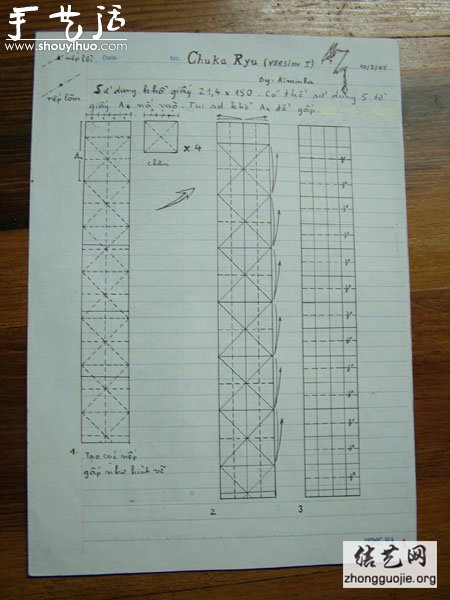 手艺活
www.shouyihuo.com
nếp lồi
Date
No.
Chuka Ryu (VERSION I)
10/3/05
By: Kiminha
nếp lõm
Sử dụng khổ giấy 21,4 x 150. Có thể sử dụng 5 tờ
giấy A4 nối vào. Tui sd khổ A4 để gấp
A
x 4
chân
1. Tạo các nếp
gấp như hình vẽ
2
3
信艺网
zhongguojie.org